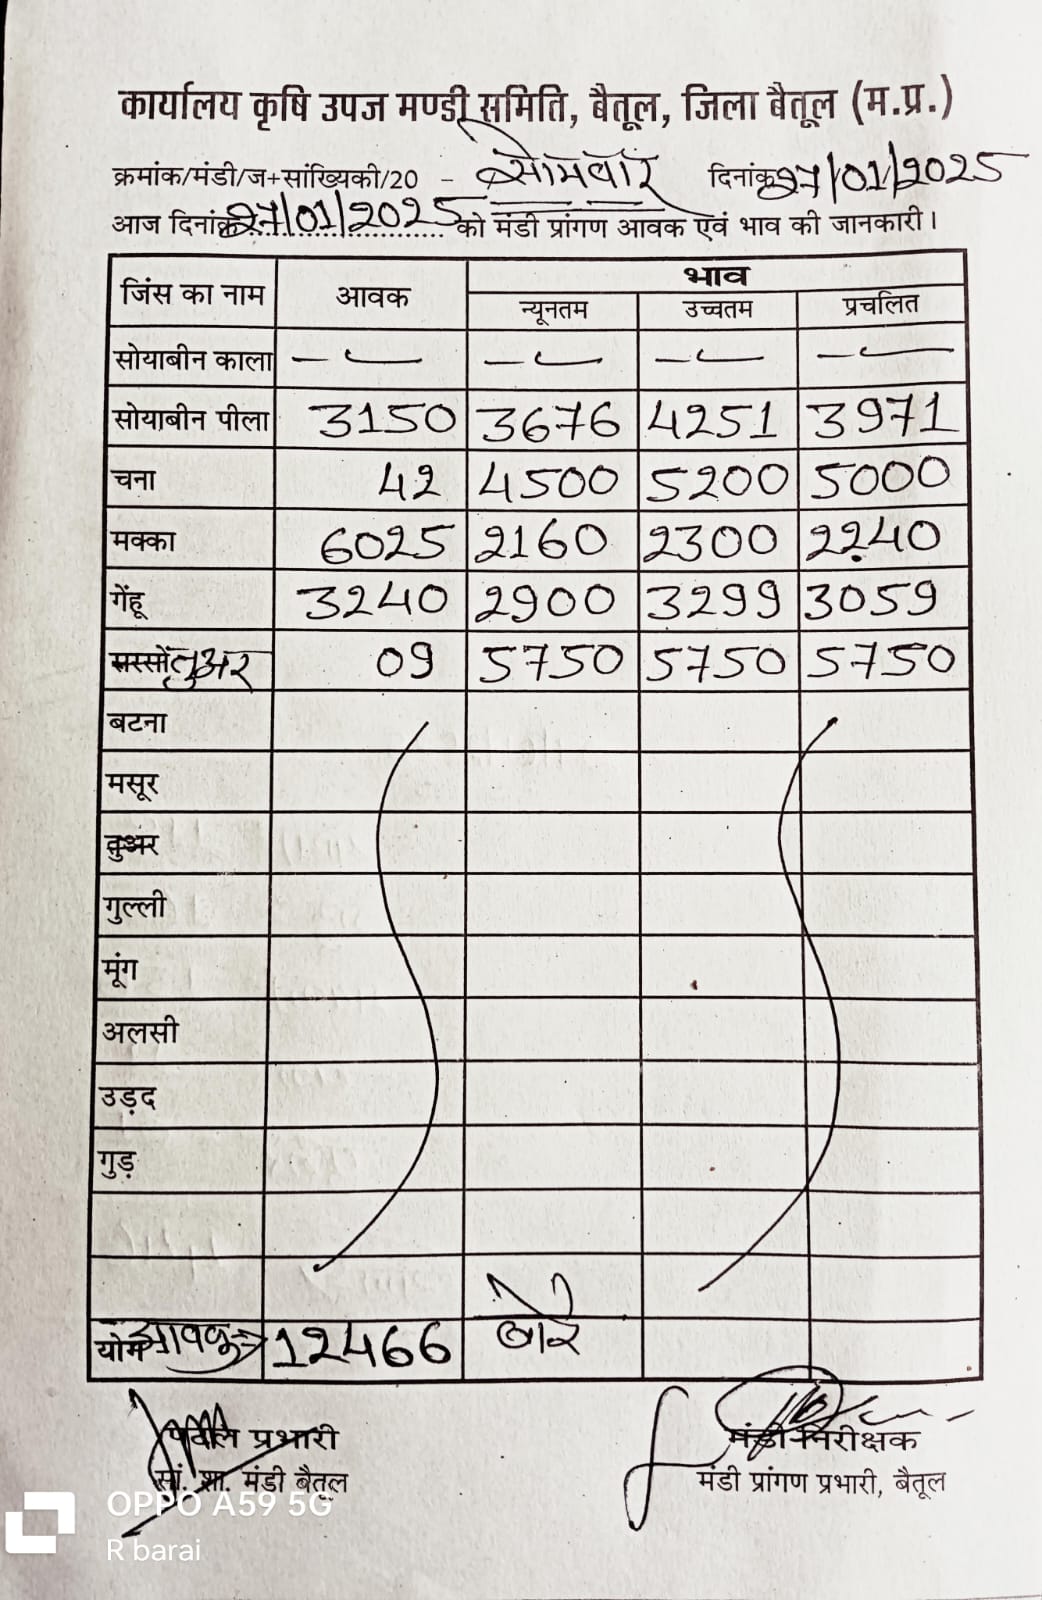 कार्यालय कृषि उपज मण्डी समिति, बैतूल, जिला बैतूल (म.प्र.)
क्रमांक/मंडी/ज+सांख्यिकी/20 - सोमवार दिनांक 27/01/2025
आज दिनांक 27/01/2025 को मंडी प्रांगण आवक एवं भाव की जानकारी।
जिंस का नाम आवक भाव
न्यूनतम उच्चतम प्रचलित
सोयाबीन काला — — — —
सोयाबीन पीला 3150 3676 4251 3971
चना 42 4500 5200 5000
मक्का 6025 2160 2300 2240
गेंहू 3240 2900 3299 3059
सरसों तुअर 09 5750 5750 5750
बटना
मसूर
तुअर
गुल्ली
मूंग
अलसी
उड़द
गुड़
योग आवक → 12466 बोरे
प्रभारी मंडी निरीक्षक
सां. शा. मंडी बैतूल मंडी प्रांगण प्रभारी, बैतूल
OPPO A59 5G
R barai